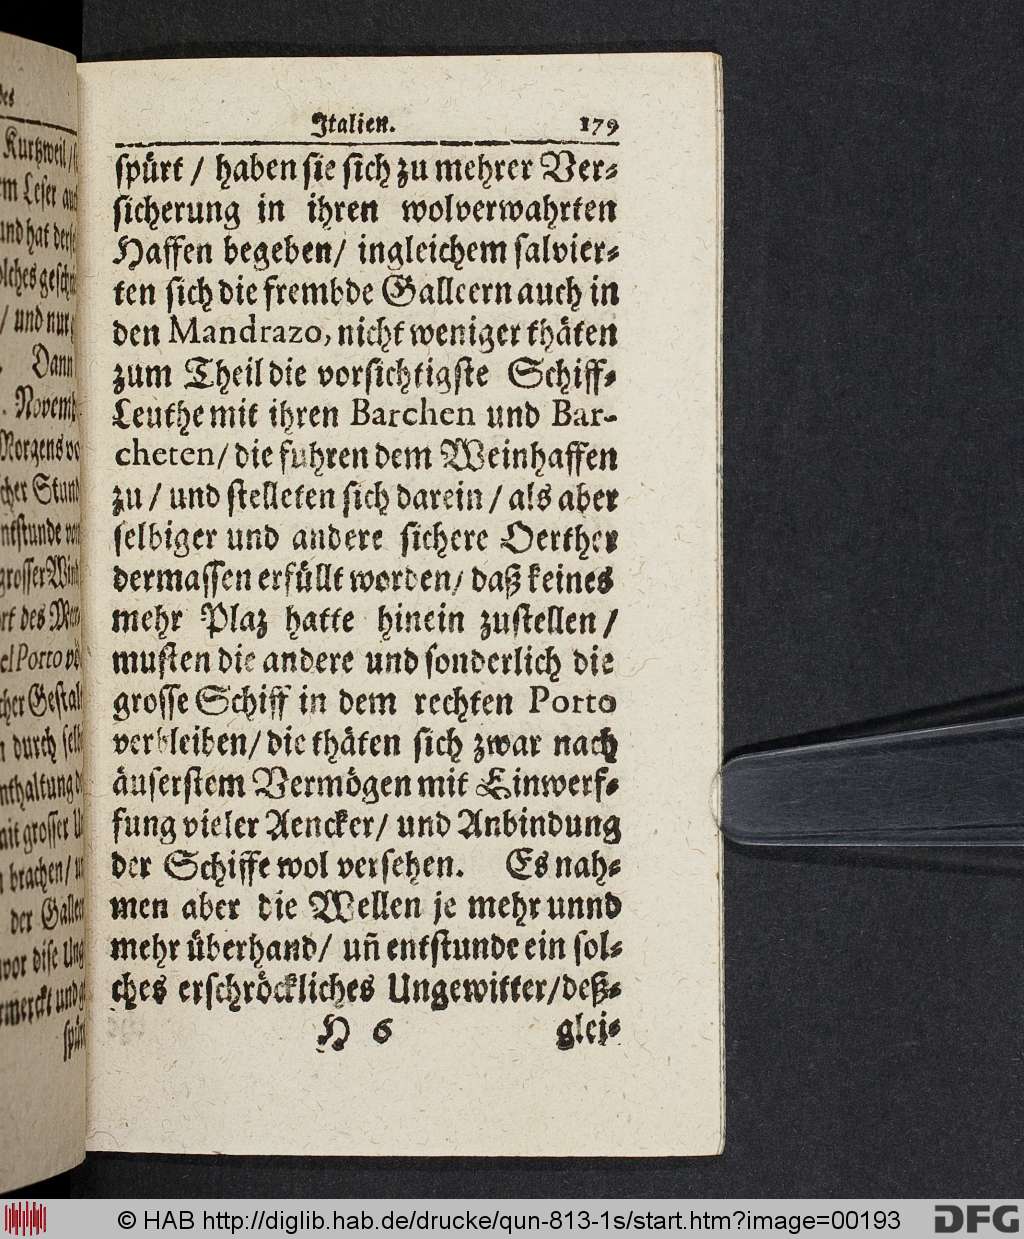 Italien. 179
spürt / haben sie sich zu mehrer Ver-
sicherung in ihren wolverwahrten
Haffen begeben/ ingleichem salvier-
ten sich die frembde Galleern auch in
den Mandrazo, nicht weniger thäten
zum Theil die vorsichtigste Schiff-
Leuthe mit ihren Barchen und Bar-
cheten/ die fuhren dem Weinhaffen
zu / und stelleten sich darein / als aber
selbiger und andere sichere Oerther
dermassen erfüllt worden/ daß keines
mehr Plaz hatte hinein zustellen /
musten die andere und sonderlich die
grosse Schiff in dem rechten Porto
verbleiben/ die thäten sich zwar nach
äuserstem Vermögen mit Einwerf-
fung vieler Aencker/ und Anbindung
der Schiffe wol versehen. Es nah-
men aber die Wellen je mehr unnd
mehr überhand/ uñ entstunde ein sol-
ches erschröckliches Ungewitter/deß-
H 6 glei-
des
Kurtzweil /
Leser
und hat
/ und nur
Dann
Novemb.
Morgens
Stund
grosser Wind
des
Porto
Gestalt
durch
mit grosser
brachen/
der Gallee
vor dise
und
spürt
© HAB http://diglib.hab.de/drucke/qun-813-1s/start.htm?image=00193
DFG